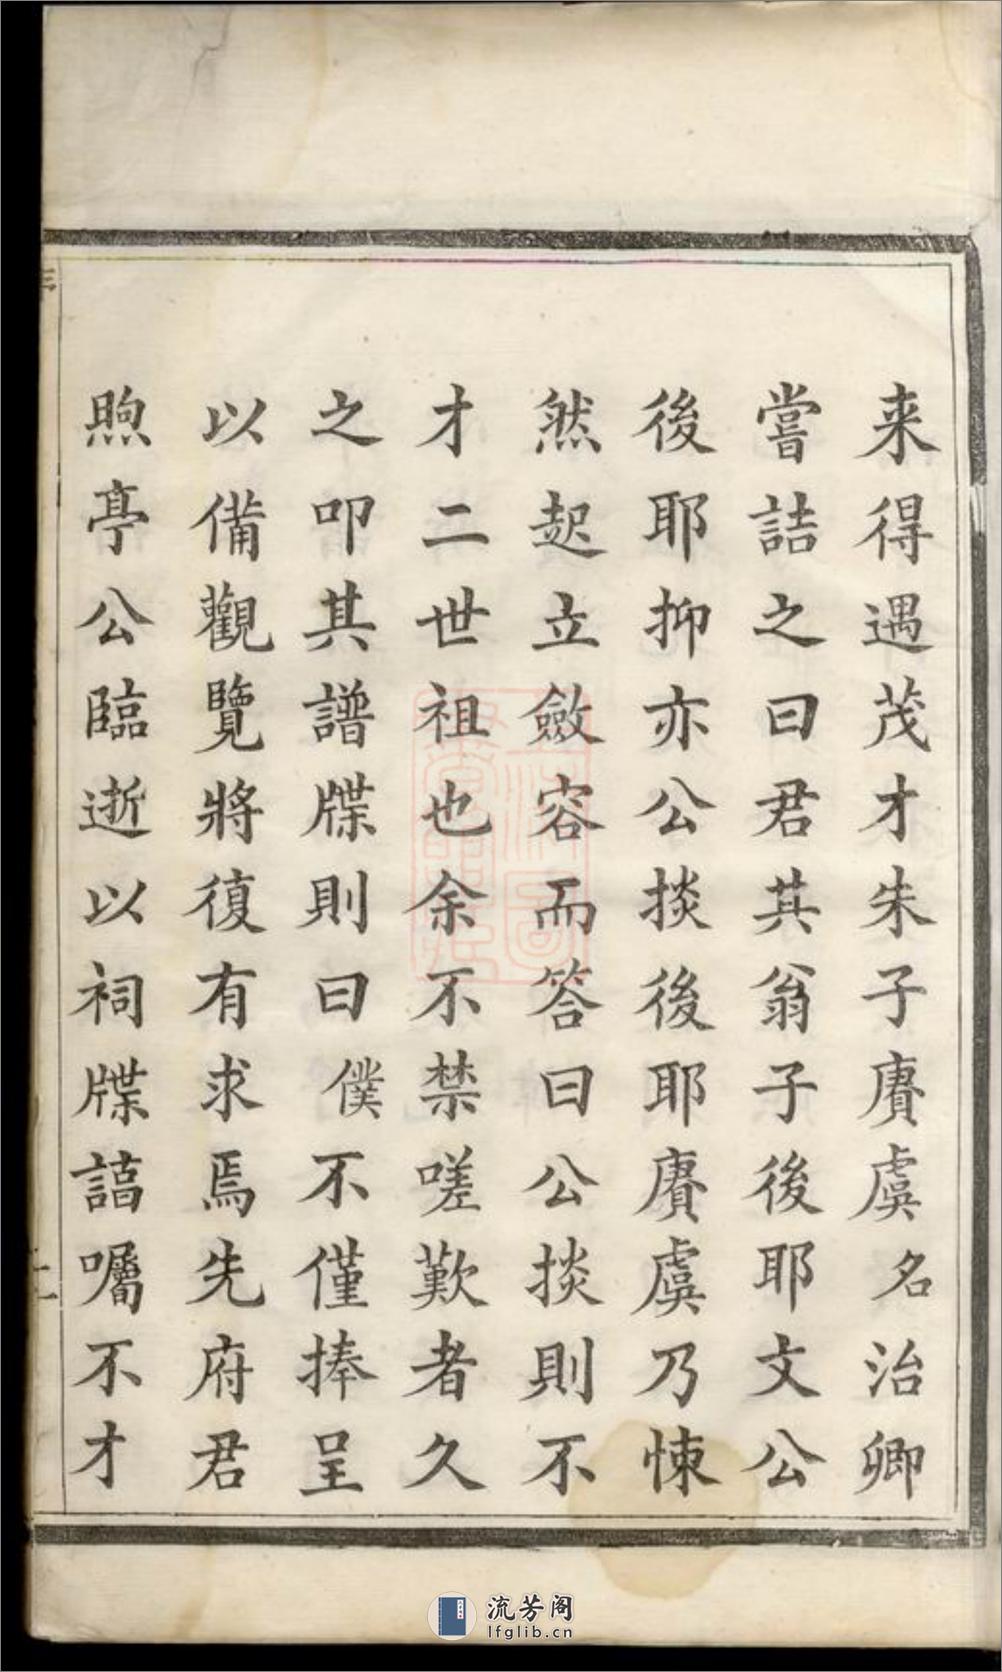 来得遇茂才朱子賡虞名治卿
嘗詰之曰君其翁子後耶文公
後耶抑亦公掞後耶賡虞乃悚
然起立斂容而答曰公掞則不
才二世祖也余不禁嗟歎者久
之叩其譜牒則曰僕不僅捧呈
以備觀覽將復有求焉先府君
煦亭公臨逝以祠牒諄囑不才
序
二
流芳阁
lfglib.cn